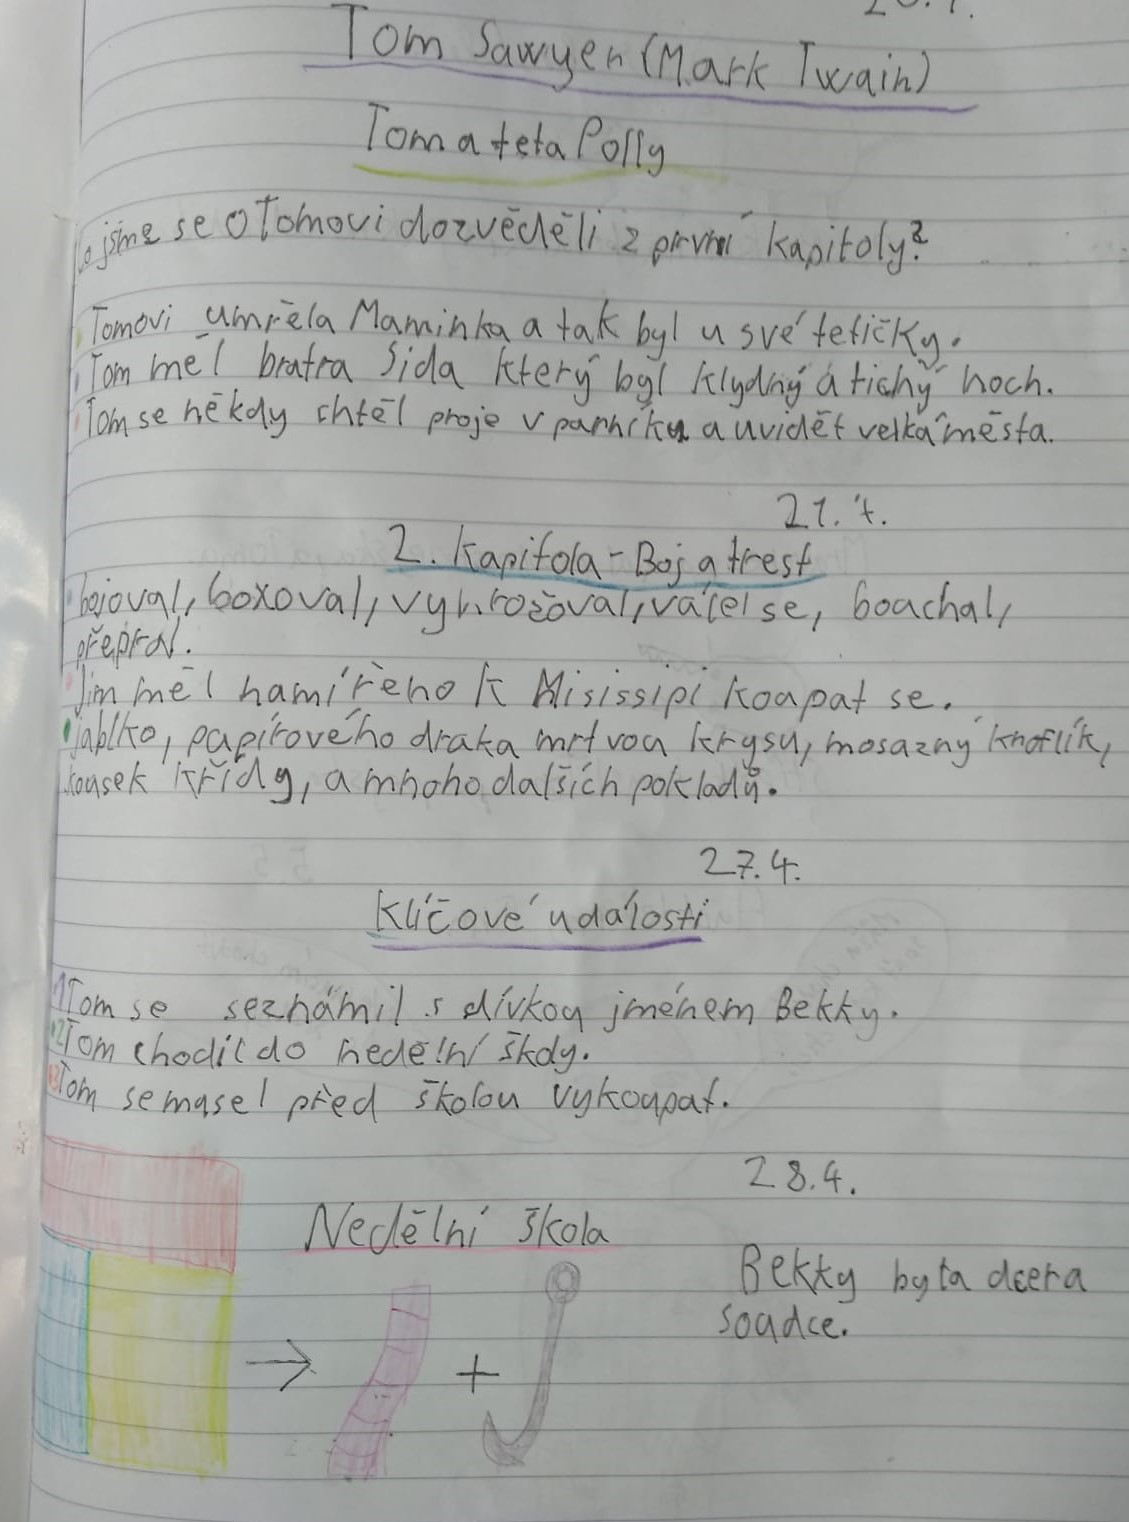 Tom Sawyer (Mark Twain)
Tom a teta Polly
jsme se o Tomovi dozvěděli z první kapitoly?
Tomovi umřela Maminka a tak byl u své tetičky.
Tom měl bratra Sida který byl klydný a tichý hoch.
Tom se někdy chtěl proje v parníku a uvidět velká města.
21.4.
2. Kapitola - Boj a trest
bojoval, boxoval, vyhrožoval, válel se, bouchal,
přepral.
Jim měl namířeno k Mississipi koupat se.
jablko, papírového draka mrtvou krysu, mosazný knoflík,
kousek křídy, a mnoho dalších pokladů.
27.4.
Klíčové události
1 Tom se seznámil s dívkou jménem Bekky.
2 Tom chodil do nedělní školy.
3 Tom se musel před školou vykoupat.
28.4.
Nedělní škola
Bekky byla dcera
soudce.
→ +